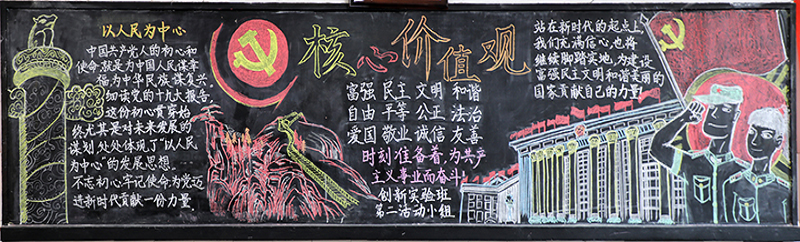 以人民为中心
中国共产党人的初心和
使命,就是为中国人民谋幸
福,为中华民族谋复兴。
细读党的十九大报告,
这份初心贯穿始
终尤其是对未来发展的
谋划,处处体现了“以人民
为中心”的发展思想。
不忘初心,牢记使命,为党迈
进新时代贡献一份力量
核心价值观
富强 民主 文明 和谐
自由 平等 公正 法治
爱国 敬业 诚信 友善
时刻准备着,为共产
主义事业而奋斗!
创新实验班
第二活动小组
站在新时代的起点上,
我们充满信心,也将
继续脚踏实地,为建设
富强民主文明和谐美丽的
国家贡献自己的力量!